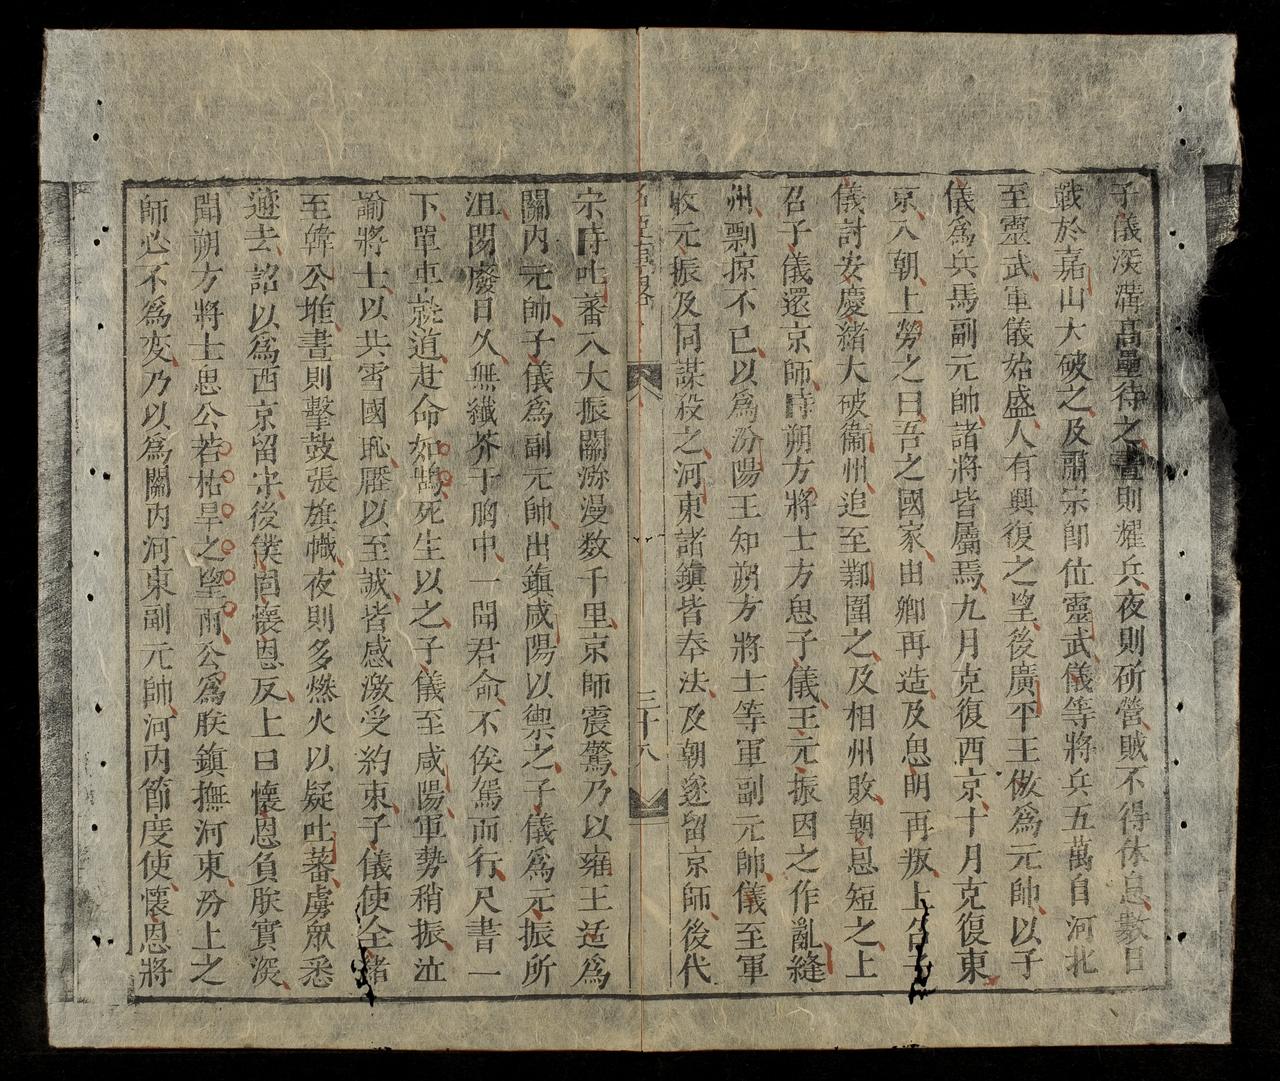 子儀深溝高壘待之晝則耀兵夜則斫營賊不得休息數日
戰於嘉山大破之及肅宗卽位靈武儀等將兵五萬自河北
至靈武軍儀始盛人有興復之望後廣平王俶爲元帥以子
儀爲兵馬副元帥諸將皆屬焉九月克復西京十月克復東
京入朝上勞之曰吾之國家由卿再造及思明再叛上召子
儀討安慶緒大破衞州追至鄴圍之及相州敗朝恩短之上
召子儀還京師時朔方將士方思子儀王元振因之作亂絳
州剽掠不已以爲汾陽王知朔方將士等軍副元帥儀至軍
收元振及同謀殺之河東諸鎭皆奉法及朝遂留京師後代
三十八
宗時吐蕃入大振關瀰漫数千里京師震驚乃以雍王适爲
關內元帥子儀爲副元帥出鎭咸陽以禦之子儀爲元振所
沮閒廢日久無纖芥于胸中一聞君命不俟駕而行尺書一
下單車就道赴命如鵠死生以之子儀至咸陽軍勢稍振泣
諭將士以共雪國恥厲以至誠皆感激受約束子儀使全緒
至韓公堆晝則擊鼓張旗幟夜則多燃火以疑吐蕃虜眾悉
遁去詔以爲西京留守後僕固懷恩反上曰懷恩負朕實深
聞朔方將士思公若枯旱之望雨公爲朕鎮撫河東汾上之
師必不爲変乃以爲關內河東副元帥河內節度使懷恩將